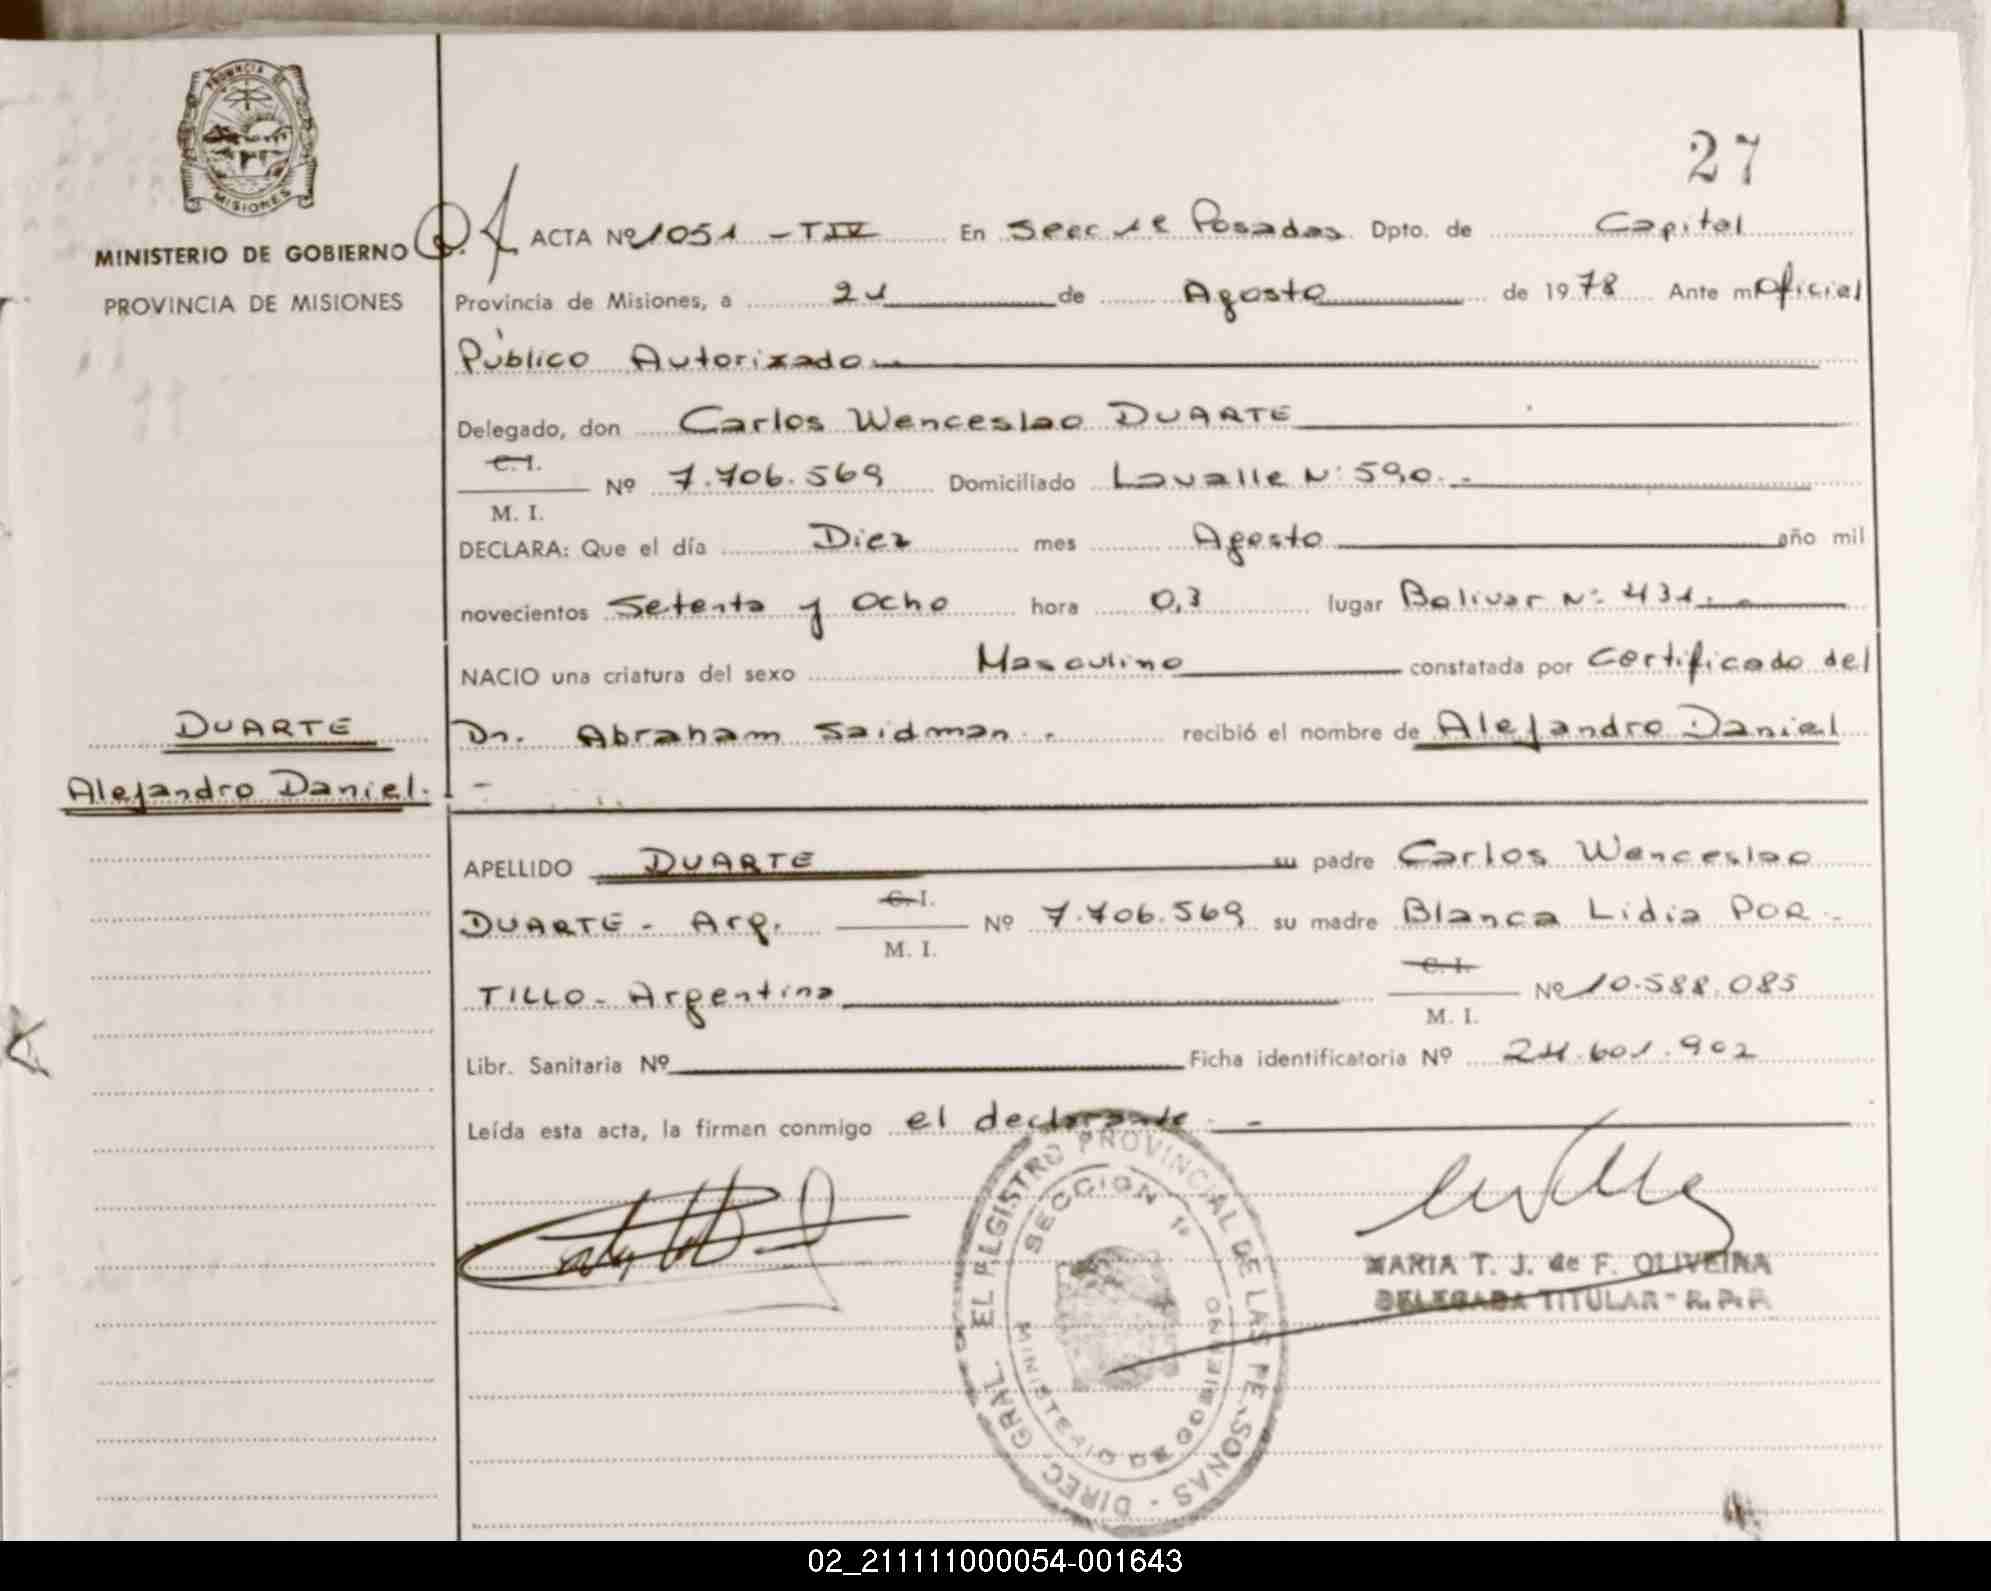 PROVINCIA DE
MISIONES
MINISTERIO DE GOBIERNO
PROVINCIA DE MISIONES
27
ACTA Nº 1051 - T IV En Secc 1ª Posadas Dpto. de Capital
Provincia de Misiones, a 24 de Agosto de 1978 Ante mí Oficial
Público Autorizado
Delegado, don Carlos Wenceslao DUARTE
C. I.
Nº 7.706.569 Domiciliado Lavalle Nº 590.-
M. I.
DECLARA: Que el día Diez mes Agosto año mil
novecientos Setenta y Ocho hora 0,3 lugar Bolivar Nº 431.-
NACIO una criatura del sexo Masculino constatada por Certificado del
Dr. Abraham Saidman.- recibió el nombre de Alejandro Daniel
-
DUARTE
Alejandro Daniel.
APELLIDO DUARTE su padre Carlos Wenceslao
C. I.
DUARTE - Arg. Nº 7.706.569 su madre Blanca Lidia POR-
M. I.
C. I.
TILLO - Argentina Nº 10.588.085
M. I.
Libr. Sanitaria Nº Ficha identificatoria Nº 24.601.902
Leída esta acta, la firman conmigo el declarante.-
DIREC. GRAL. EL REGISTRO PROVINCIAL DE LAS PERSONAS -
SECCION 1ª
MINISTERIO DE GOBIERNO
MARIA T. J. de F. OLIVEIRA
DELEGADA TITULAR - R. P. P.
02_211111000054-001643